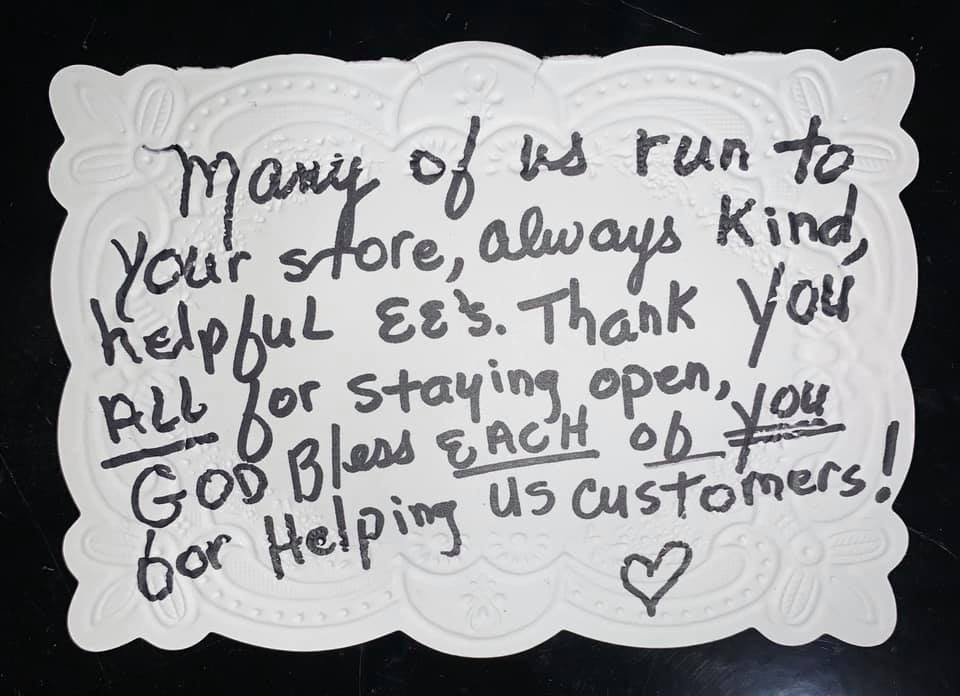 Many of us run to
your store, always kind,
helpful EE's. Thank you
ALL for staying open,
GOD Bless EACH of you
for Helping us customers!
♡